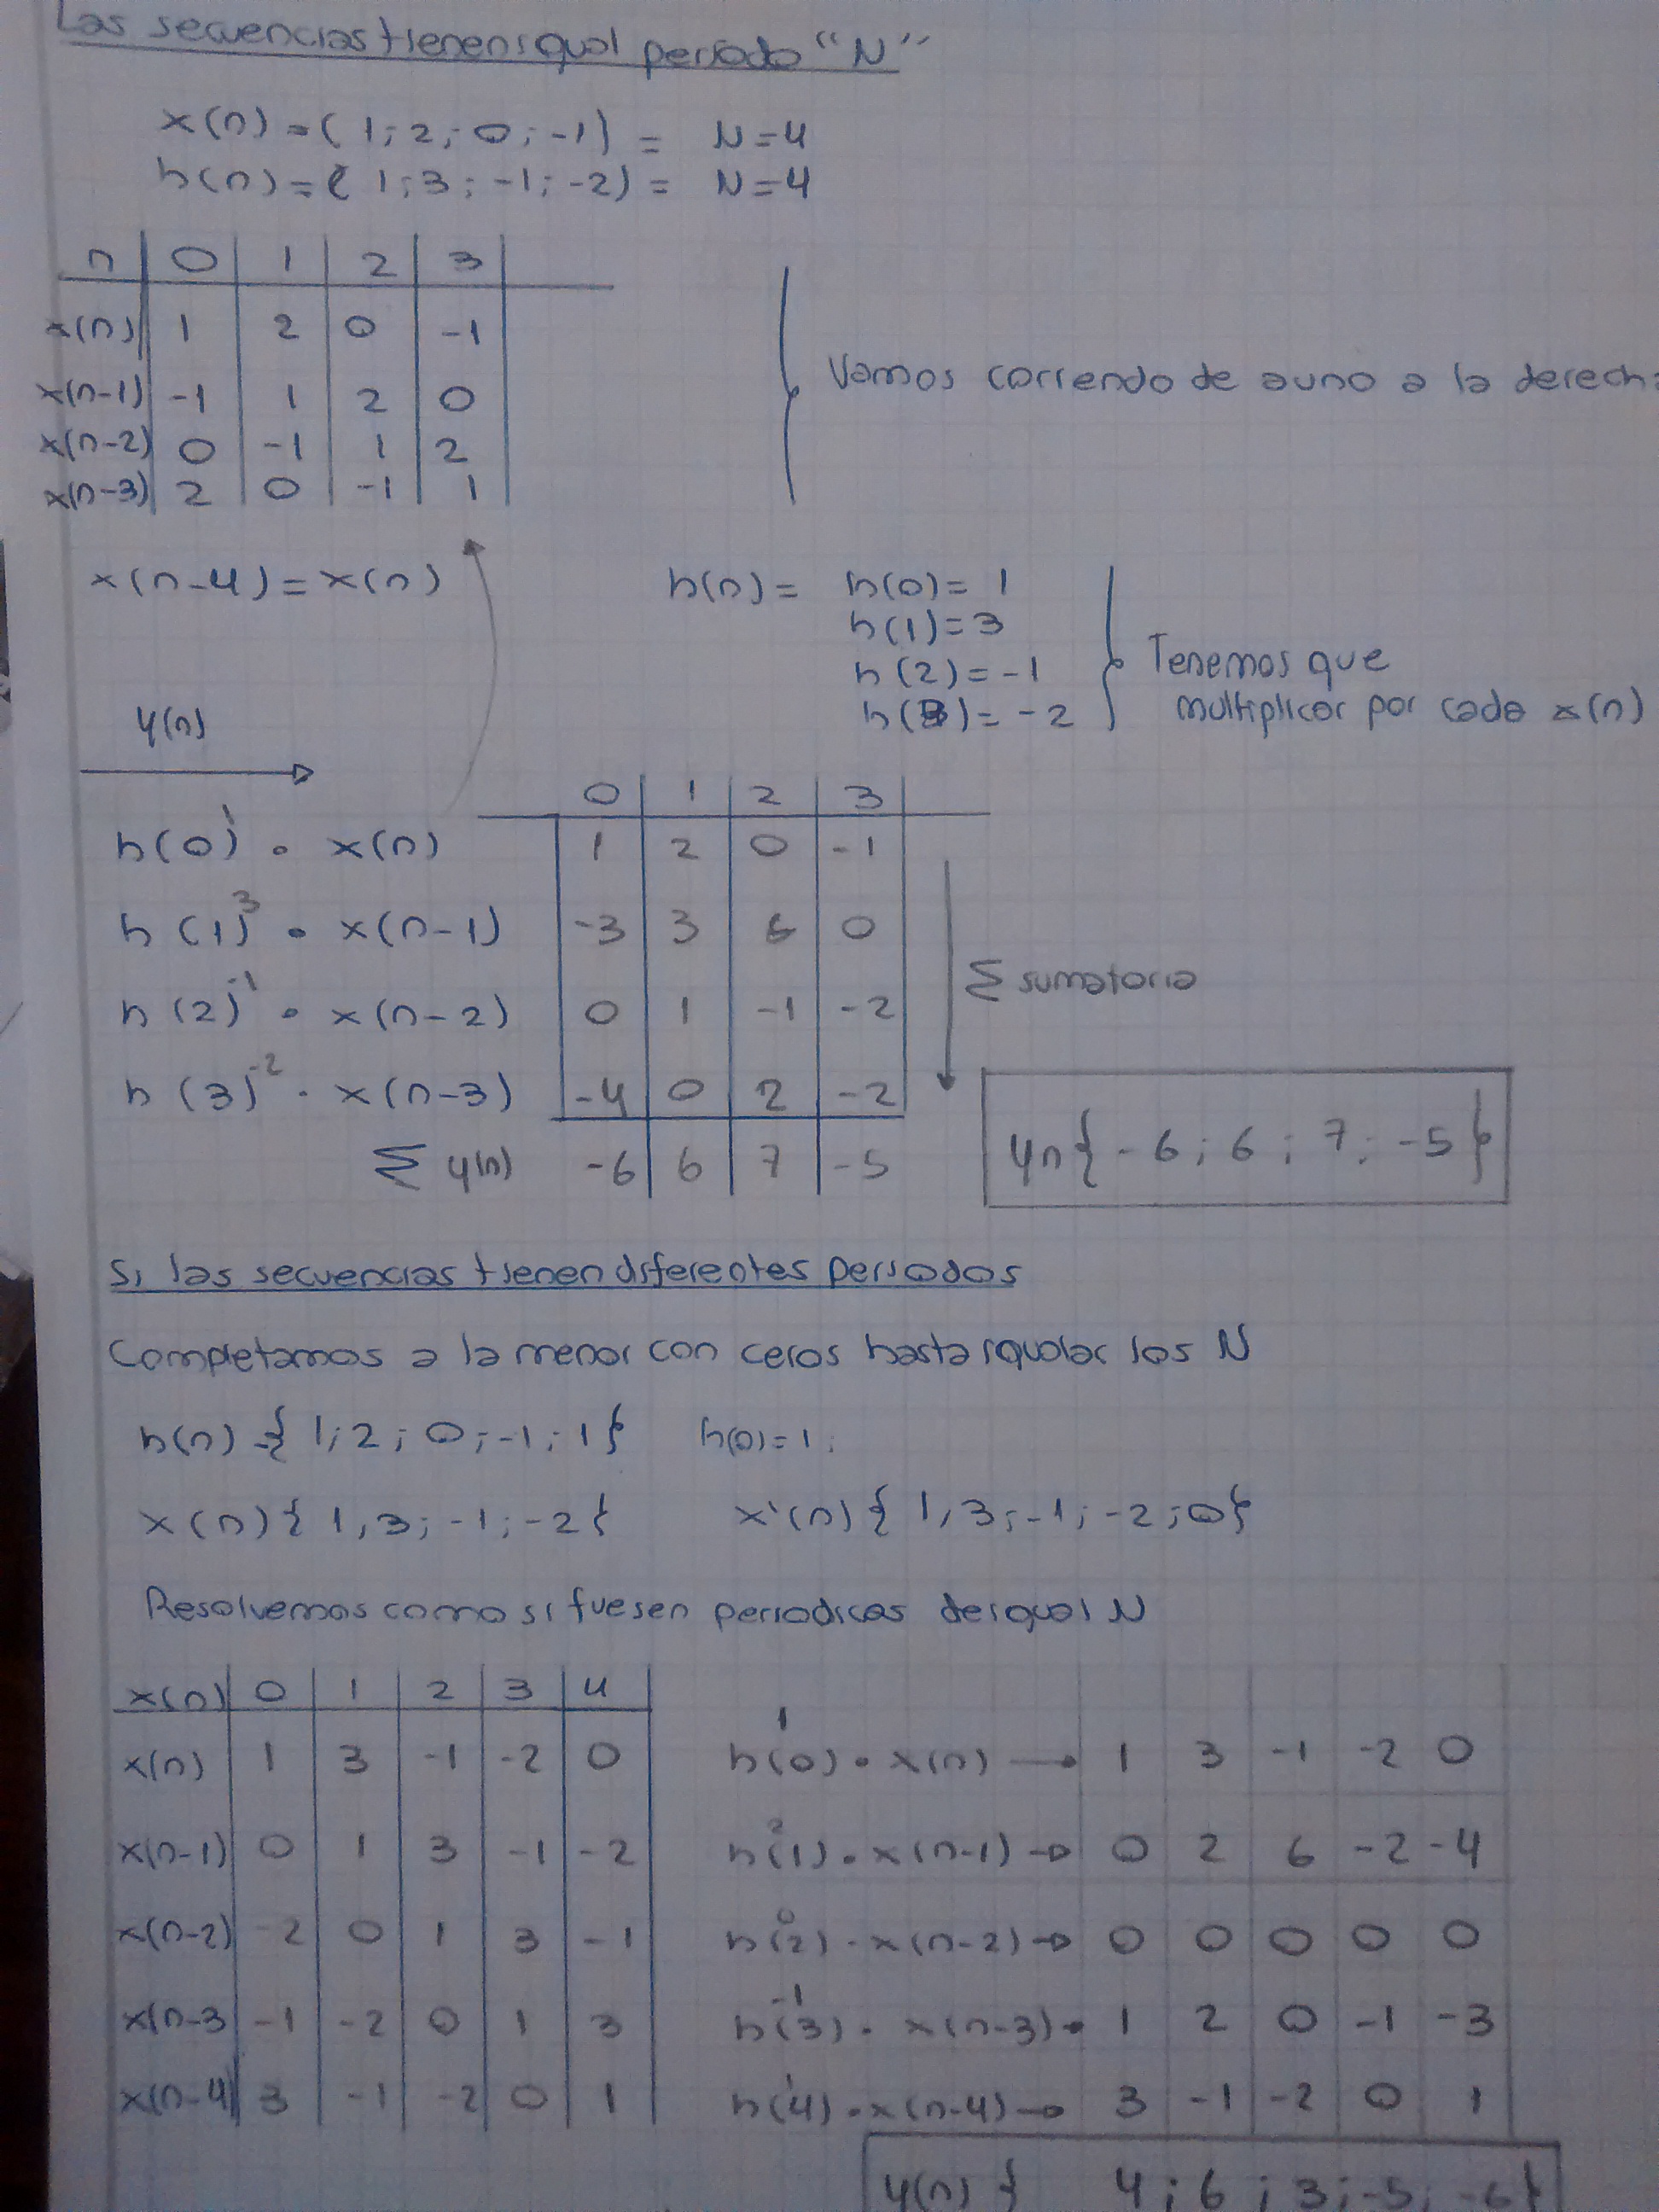 Las secuencias tienen igual periodo "N"
x(n) = ( 1 ; 2 ; 0 ; -1 ) = N=4
h(n) = ( 1 ; 3 ; -1 ; -2 ) = N=4
n 0 1 2 3
x(n) 1 2 0 -1
x(n-1) -1 1 2 0
x(n-2) 0 -1 1 2
x(n-3) 2 0 -1 1
Vamos corriendo de a uno a la derech
x(n-4) = x(n)
h(n) = h(0) = 1
h(1) = 3
h(2) = -1
h(3) = -2
Tenemos que
multiplicar por cada x(n)
y(n)
0 1 2 3
h(0) 1 · x(n) 1 2 0 -1
h(1) 3 · x(n-1) -3 3 6 0
h(2) -1 · x(n-2) 0 1 -1 -2
h(3) -2 · x(n-3) -4 0 2 -2
Σ sumatoria
Σ y(n) -6 6 7 -5
yn{ -6 ; 6 ; 7 ; -5 }
Si las secuencias tienen diferentes periodos
Completamos a la menor con ceros hasta igualar los N
h(n) = { 1 ; 2 ; 0 ; -1 ; 1 } h(0) = 1 ;
x(n) { 1 , 3 ; -1 ; -2 } x'(n) { 1 , 3 ; -1 ; -2 ; 0 }
Resolvemos como si fuesen periodicas de igual N
x(n) 0 1 2 3 4
x(n) 1 3 -1 -2 0
x(n-1) 0 1 3 -1 -2
x(n-2) -2 0 1 3 -1
x(n-3 -1 -2 0 1 3
x(n-4) 3 -1 -2 0 1
h(0) 1 · x(n) → 1 3 -1 -2 0
h(1) 2 · x(n-1) → 0 2 6 -2 -4
h(2) 0 · x(n-2) → 0 0 0 0 0
h(3) -1 · x(n-3) → 1 2 0 -1 -3
h(4) 1 · x(n-4) → 3 -1 -2 0 1
y(n) { 4 ; 6 ; 3 ; -5 ; -6 }